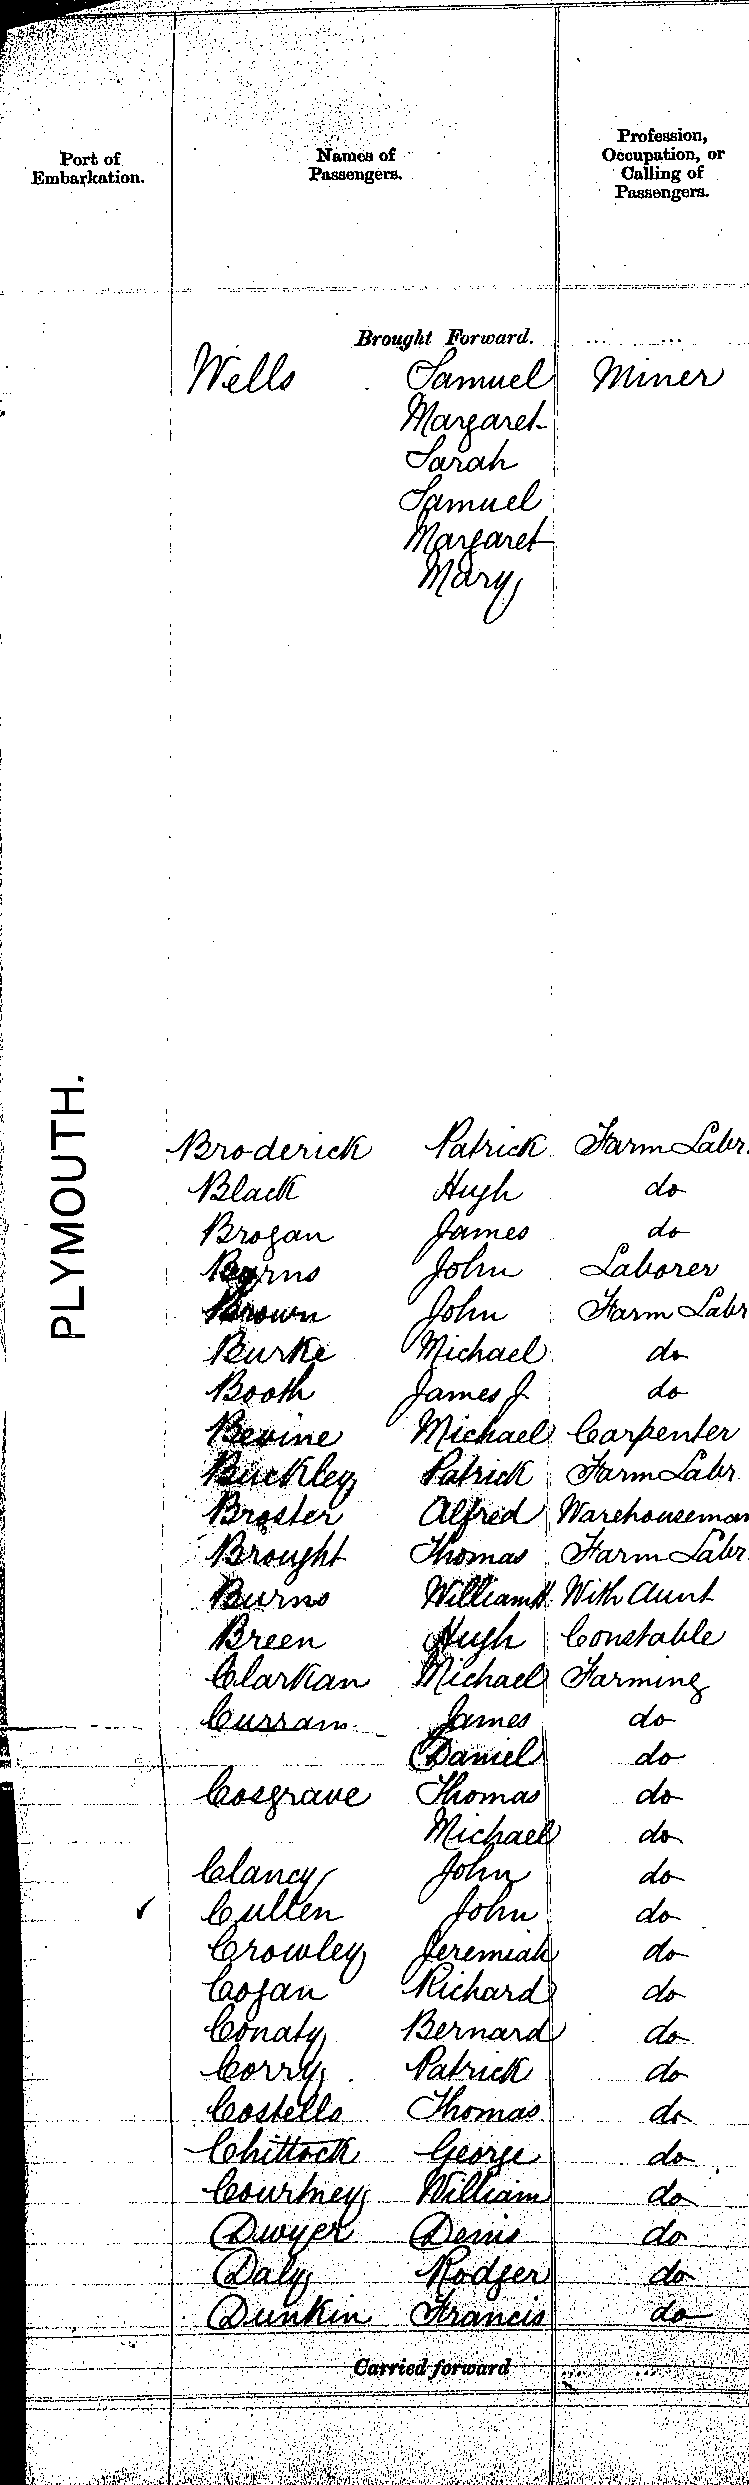 Port of Embarkation. Names of Passengers. Profession, Occupation, or Calling of Passengers.
Brought Forward. ... ...
Wells Samuel Miner
Margaret
Sarah
Samuel
Margaret
Mary
PLYMOUTH.
Broderick Patrick Farm Labr.
Black Hugh do
Brogan James do
Byrns John Laborer
Brown John Farm Labr
Burke Michael do
Booth James J. do
Bevine Michael Carpenter
Buckley Patrick Farm Labr.
Broster Alfred Warehouseman
Brought Thomas Farm Labr.
Burns William H. With Aunt
Breen Hugh Constable
Clarkan Michael Farming
Curran James do
Daniel do
Cosgrave Thomas do
Michael do
Clancy John do
✓ Cullen John do
Crowley Jeremiah do
Cogan Richard do
Conaty Bernard do
Corry Patrick do
Costello Thomas do
Chittock George do
Courtney William do
Dwyer Denis do
Daly Rodger do
Dunkin Francis do
Carried forward ... ...